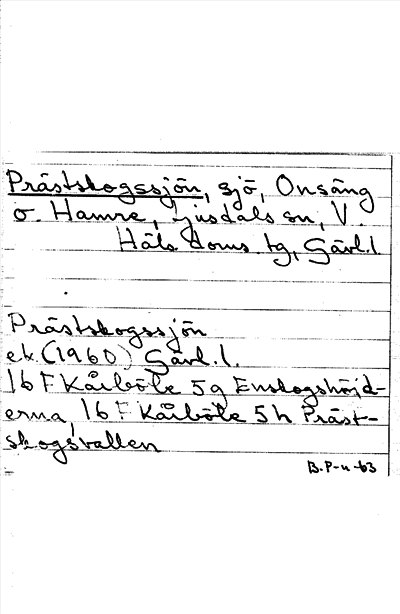 Prästskogssjön, sjö, Onsäng
o. Hamre, Ljusdals sn, V.
Häls. doms. tg, Gävl. l.
Prästskogssjön
ek. (1960) Gävl. l.
16 F Kårböle 5g Enskogshöjd-
erna, 16 F Kårböle 5h Präst-
skogsvallen
B.P-n -63